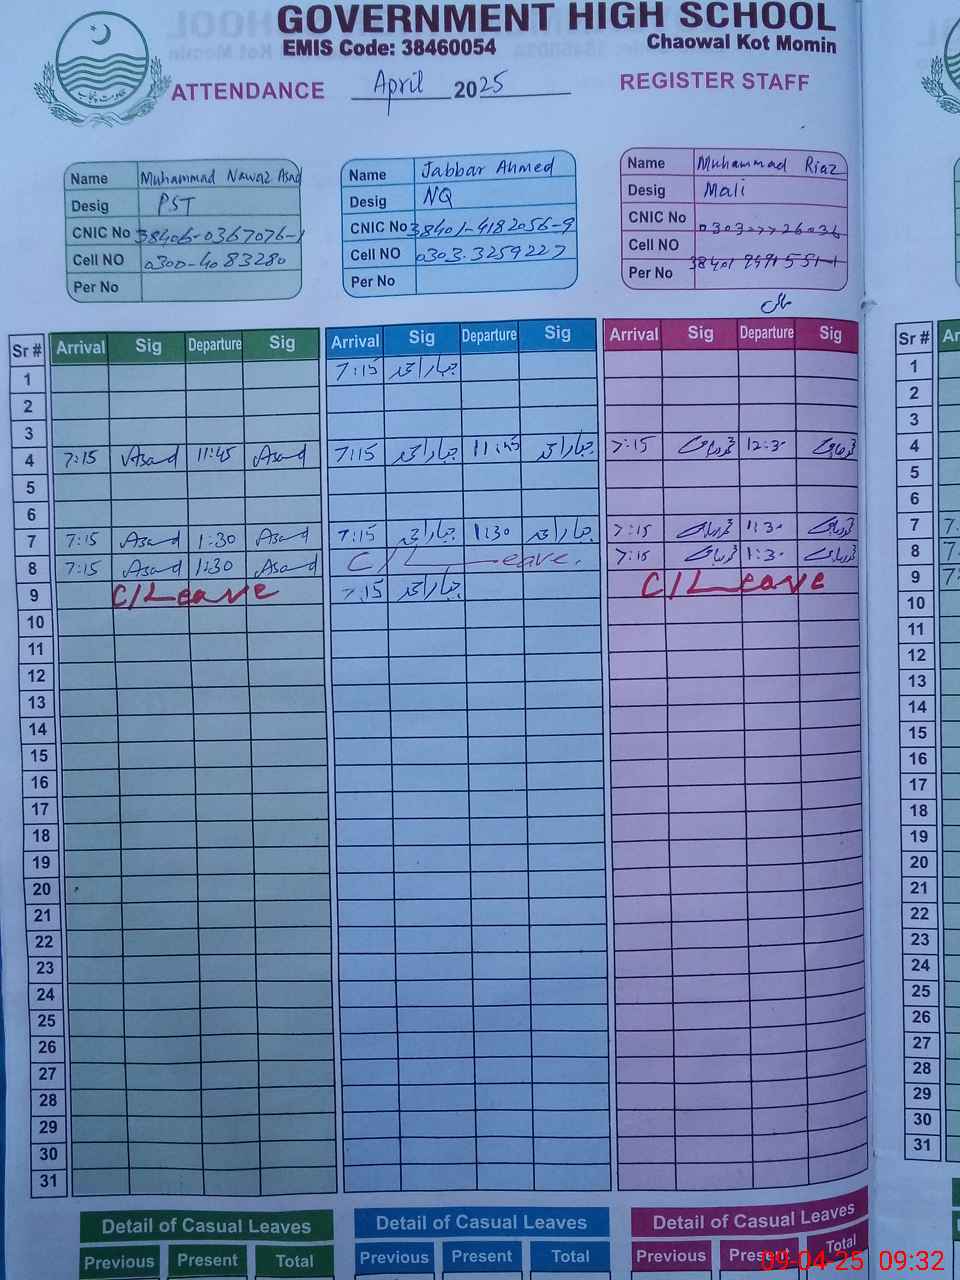 GOVERNMENT HIGH SCHOOL
EMIS Code: 38460054 Chaowal Kot Momin
ATTENDANCE April 2025 REGISTER STAFF
Name Muhammad Nawaz Asad
Desig PST
CNIC No 38406-0367076-1
Cell NO 0300-4083280
Per No
Name Jabbar Ahmed
Desig NQ
CNIC No 38401-4182056-9
Cell NO 0303-3259227
Per No
Name Muhammad Riaz
Desig Mali
CNIC No
Cell NO
Per No
Sr # Arrival Sig Departure Sig Arrival Sig Departure Sig Arrival Sig Departure Sig Sr # Ar
1 7:15 جبار احمد 1
2 2
3 3
4 7:15 Asad 11:45 Asad 7:15 جبار احمد 11:45 جبار احمد 7:15 12:30 4
5 5
6 6
7 7:15 Asad 1:30 Asad 7:15 جبار احمد 1:30 جبار احمد 7:15 1:30 7 7
8 7:15 Asad 1:30 Asad C/Leave. 7:15 1:30 8 7
9 C/Leave 7:15 جبار احمد C/Leave 9 7
10 10
11 11
12 12
13 13
14 14
15 15
16 16
17 17
18 18
19 19
20 20
21 21
22 22
23 23
24 24
25 25
26 26
27 27
28 28
29 29
30 30
31 31
Detail of Casual Leaves Detail of Casual Leaves Detail of Casual Leaves
Previous Present Total Previous Present Total Previous Present Total
09-04-25 09:32